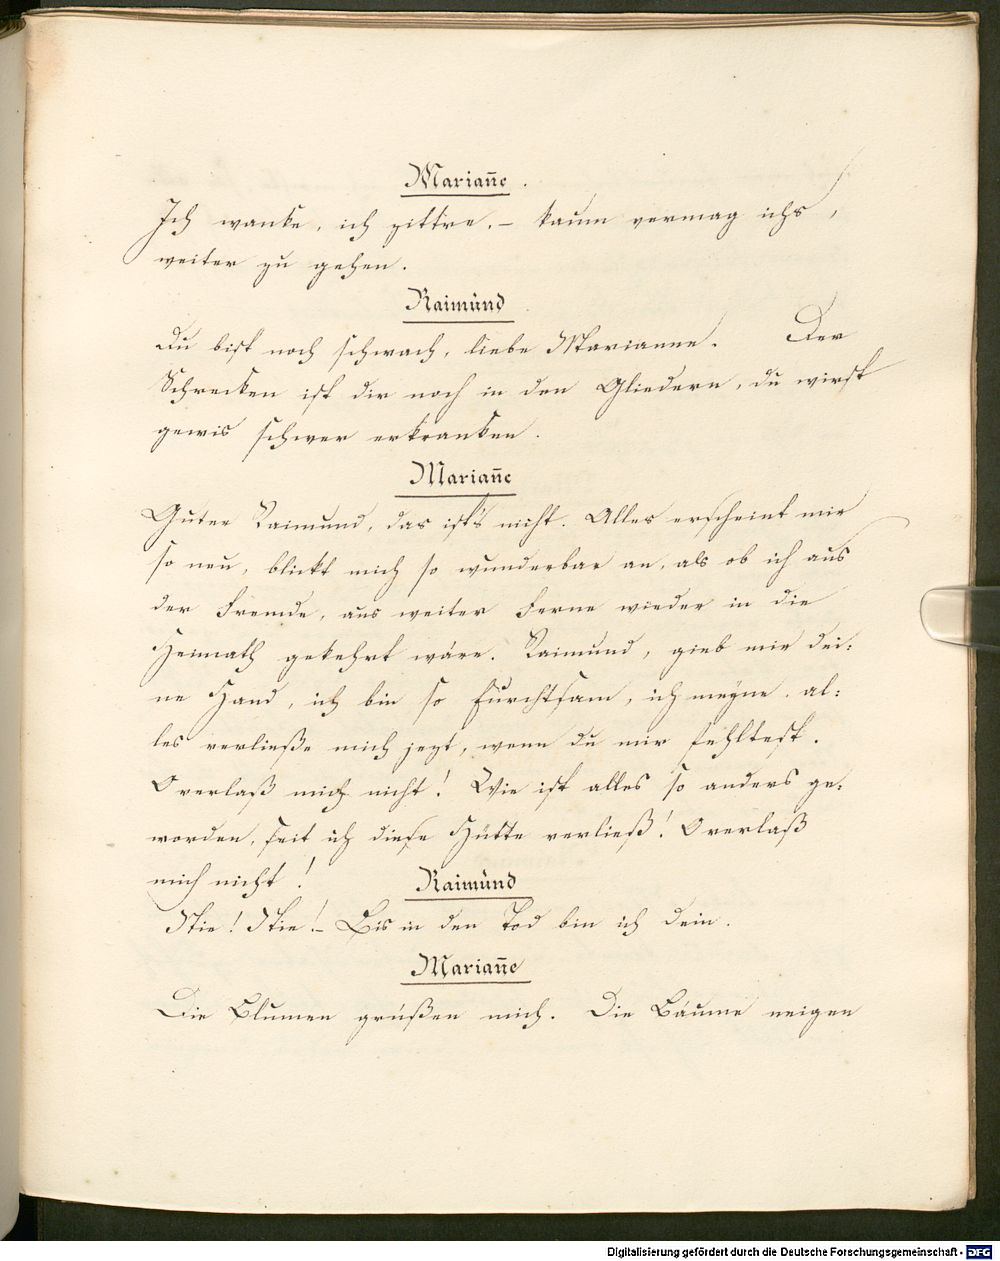 Mariañe.
Ich wanke, ich zittre. – kaum vermag ichs,
weiter zu gehen.
Raimund
Du bist noch schwach, liebe Marianne. Der
Schrecken ist dir noch in den Gliedern, du wirst
gewis schwer erkranken.
Mariañe
Guter Raimund, das ist's nicht. Alles erscheint mir
so neu, blickt mich so wunderbar an, als ob ich aus
der Fremde, aus weiter Ferne wieder in die
Heimath gekehrt wäre. Raimund, gieb mir dei:
ne Hand, ich bin so furchtsam, ich meyne, al:
les verließe mich jezt, wenn du mir fehltest.
O verlaß mich nicht! Wie ist alles so anders ge:
worden, seit ich diese Hütte verließ! O verlaß
mich nicht!
Raimund
Nie! Nie! – Bis in den Tod bin ich dein.
Mariañe
Die Blumen grüßen mich. Die Bäume neigen
Digitalisierung gefördert durch die Deutsche Forschungsgemeinschaft - DFG